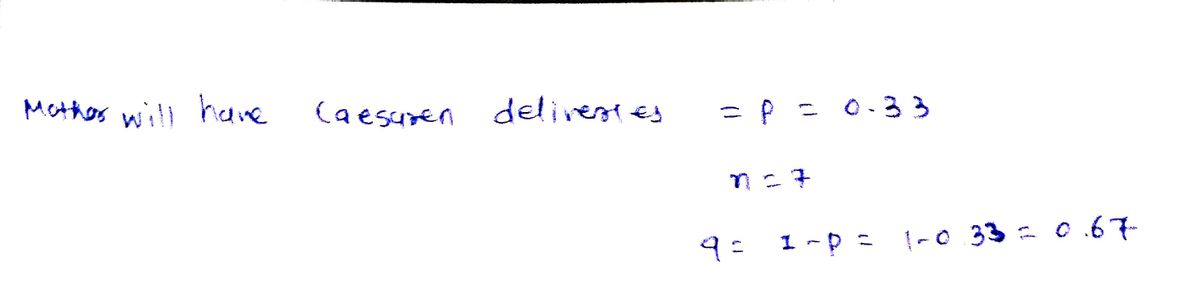 Mother will have Caesaren deliveries = p = 0.33
n = 7
q = 1 - p = 1-0.33 = 0.67